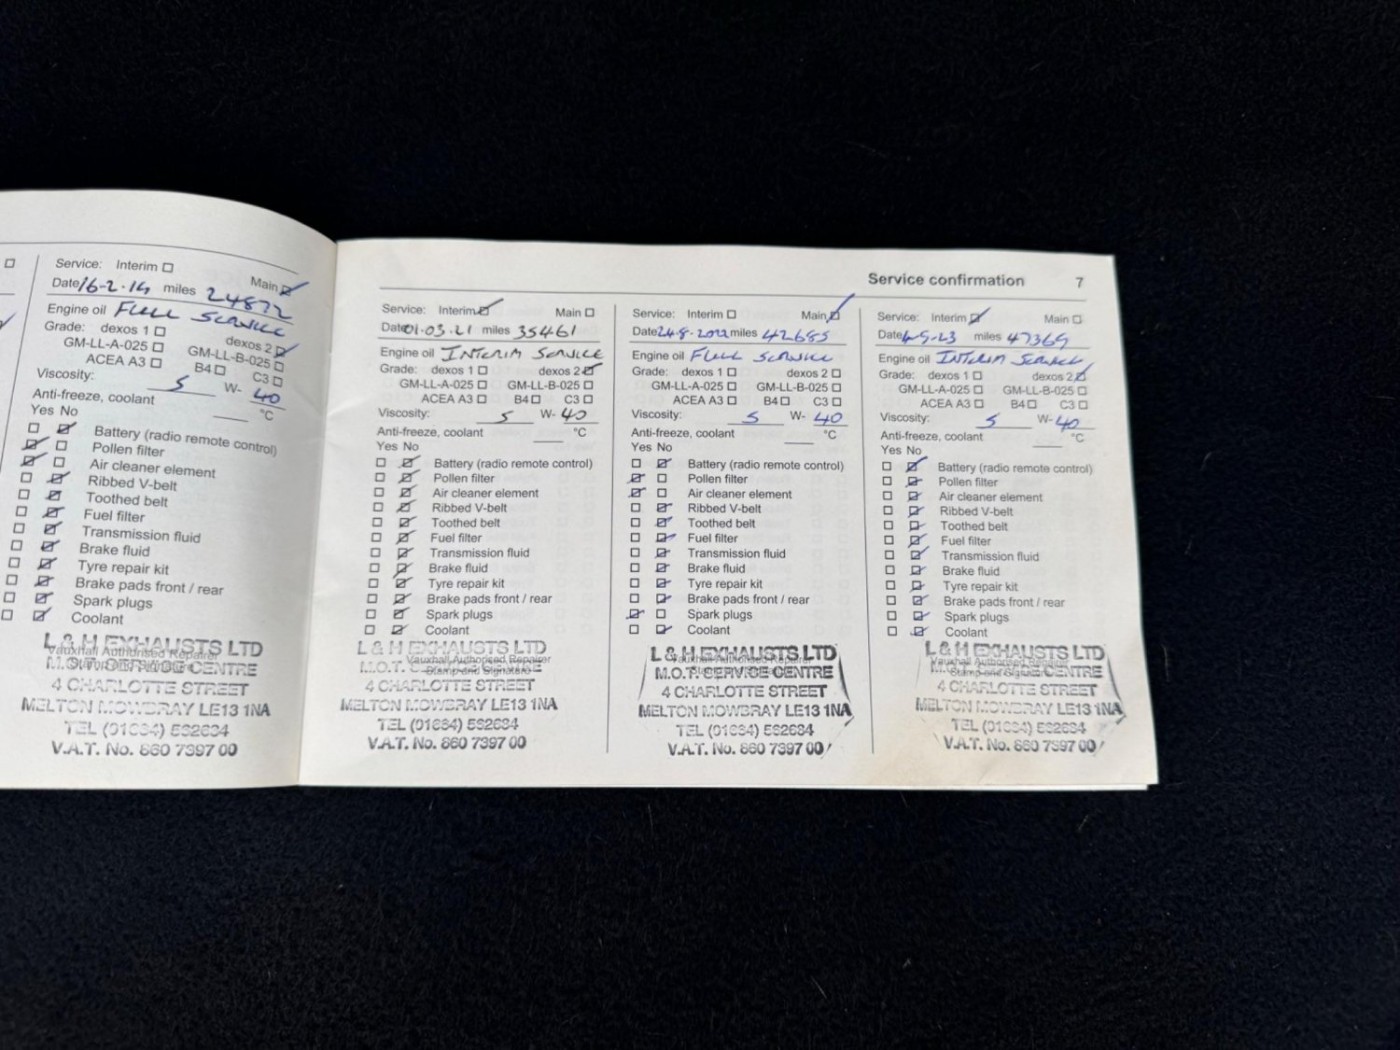 Service: Interim
Main
Date 16-2-19 miles 24872
Engine oil FULL SERVICE
Grade: dexos 1
dexos 2
GM-LL-A-025 GM-LL-B-025
ACEA A3 B4 C3
Viscosity: 5 W- 40
Anti-freeze, coolant °C
Yes No
Battery (radio remote control)
Pollen filter
Air cleaner element
Ribbed V-belt
Toothed belt
Fuel filter
Transmission fluid
Brake fluid
Tyre repair kit
Brake pads front / rear
Spark plugs
Coolant
L & H EXHAUSTS LTD
Vauxhall Authorised Repairer
M.O.T. SERVICE CENTRE
4 CHARLOTTE STREET
MELTON MOWBRAY LE13 1NA
TEL (01664) 562634
V.A.T. No. 860 7397 00
Service confirmation 7
Service: Interim Main
Date 01.03.21 miles 35461
Engine oil INTERIM SERVICE
Grade: dexos 1 dexos 2
GM-LL-A-025 GM-LL-B-025
ACEA A3 B4 C3
Viscosity: 5 W- 40
Anti-freeze, coolant °C
Yes No
Battery (radio remote control)
Pollen filter
Air cleaner element
Ribbed V-belt
Toothed belt
Fuel filter
Transmission fluid
Brake fluid
Tyre repair kit
Brake pads front / rear
Spark plugs
Coolant
L & H EXHAUSTS LTD
Vauxhall Authorised Repairer
M.O.T. SERVICE CENTRE
Stamp and Signature
4 CHARLOTTE STREET
MELTON MOWBRAY LE13 1NA
TEL (01664) 562634
V.A.T. No. 860 7397 00
Service: Interim Main
Date 24-8-2022 miles 42685
Engine oil FULL SERVICE
Grade: dexos 1 dexos 2
GM-LL-A-025 GM-LL-B-025
ACEA A3 B4 C3
Viscosity: 5 W- 40
Anti-freeze, coolant °C
Yes No
Battery (radio remote control)
Pollen filter
Air cleaner element
Ribbed V-belt
Toothed belt
Fuel filter
Transmission fluid
Brake fluid
Tyre repair kit
Brake pads front / rear
Spark plugs
Coolant
L & H EXHAUSTS LTD
Vauxhall Authorised Repairer
M.O.T. SERVICE CENTRE
4 CHARLOTTE STREET
MELTON MOWBRAY LE13 1NA
TEL (01664) 562634
V.A.T. No. 860 7397 00
Service: Interim Main
Date miles 47369
Engine oil INTERIM SERVICE
Grade: dexos 1 dexos 2
GM-LL-A-025 GM-LL-B-025
ACEA A3 B4 C3
Viscosity: 5 W- 40
Anti-freeze, coolant °C
Yes No
Battery (radio remote control)
Pollen filter
Air cleaner element
Ribbed V-belt
Toothed belt
Fuel filter
Transmission fluid
Brake fluid
Tyre repair kit
Brake pads front / rear
Spark plugs
Coolant
L & H EXHAUSTS LTD
Vauxhall Authorised Repairer
M.O.T. SERVICE CENTRE
Stamp and Signature
4 CHARLOTTE STREET
MELTON MOWBRAY LE13 1NA
TEL (01664) 562634
V.A.T. No. 860 7397 00